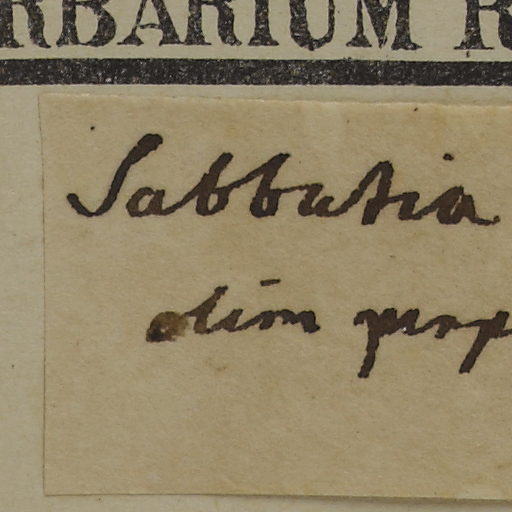 RBARIUM R
Sabbatia
olim purp